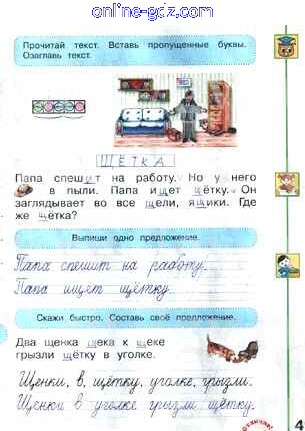 online-gdz.com
Прочитай текст. Вставь пропущенные буквы.
Озаглавь текст.
ЩЁТКА
Папа спешит на работу. Но у него
в пыли. Папа ищет щётку. Он
заглядывает во все щели, ящики. Где
же щётка?
Выпиши одно предложение.
Папа спешит на работу.
Папа ищет щётку.
Скажи быстро. Составь своё предложение.
Два щенка щека к щеке
грызли щётку в уголке.
Щенки, в, щётку, уголке, грызли.
Щенки в уголке грызли щётку.
4